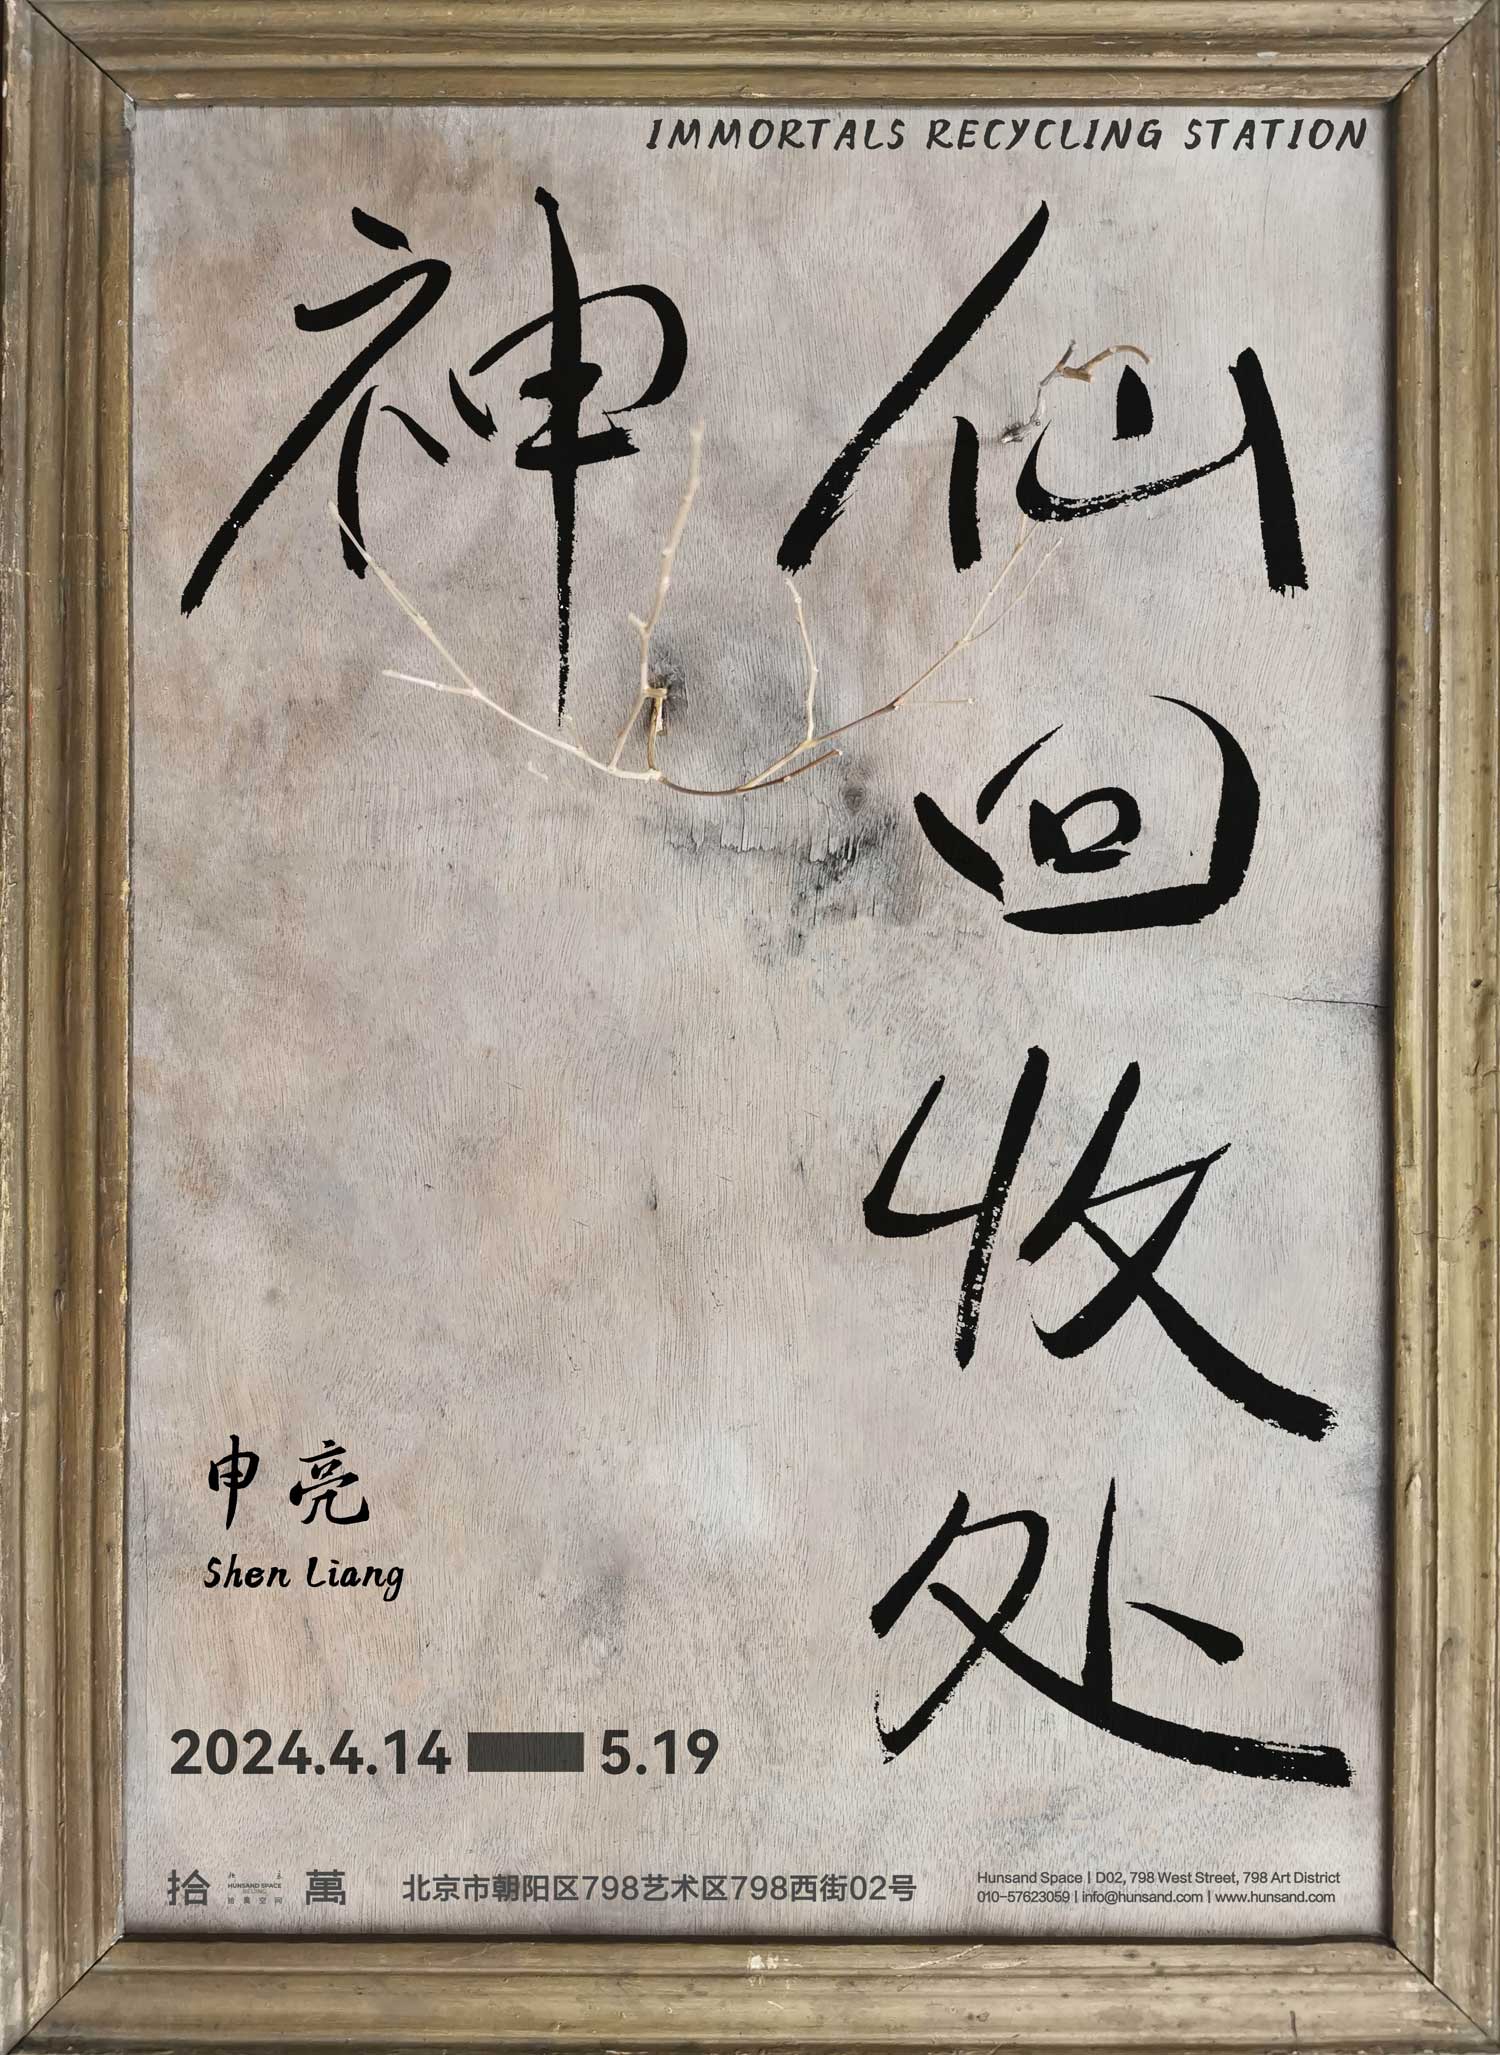 IMMORTALS RECYCLING STATION
神仙
回
收
处
申亮
Shen Liang
2024.4.14 5.19
拾 萬
北 京
HUNSAND SPACE
BEIJING
拾萬空间
北京市朝阳区798艺术区798西街02号
Hunsand Space | D02, 798 West Street, 798 Art District
010-57623059 | info@hunsand.com | www.hunsand.com